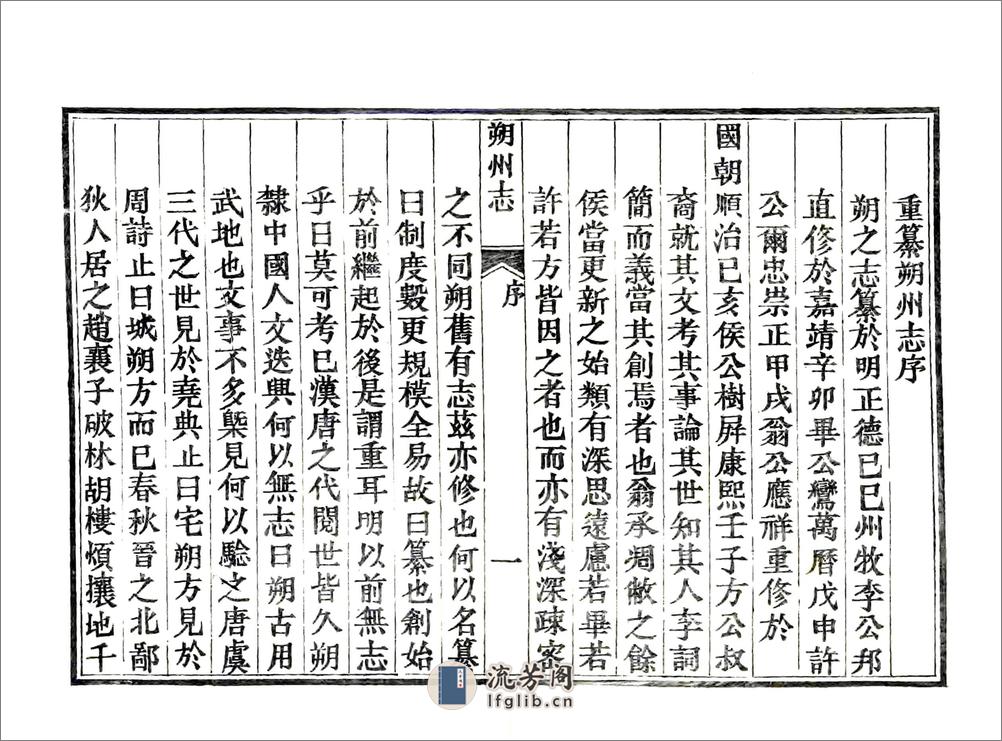 重纂朔州志序
朔之志纂於明正德己巳州牧李公邦
直修於嘉靖辛卯畢公鸞萬曆戊申許
公爾忠崇正甲戌翁公應祥重修於
國朝順治己亥侯公樹屏康熙壬子方公叔
裔就其文考其事論其世知其人李詞
簡而義當其創焉者也翁承凋敝之餘
侯當更新之始類有深思遠慮若畢若
許若方皆因之者也而亦有淺深疎密
朔州志
序
一
之不同朔舊有志茲亦修也何以名纂
曰制度數更規模全易故曰纂也創始
於前繼起於後是謂重耳明以前無志
乎曰莫可考已漢唐之代閱世皆久朔
隸中國人文迭興何以無志曰朔古用
武地也文事不多槩見何以驗之唐虞
三代之世見於堯典止曰宅朔方見於
周詩止曰城朔方而已春秋晉之北鄙
狄人居之趙襄子破林胡樓煩攘地千
流芳阁
lfglib.cn